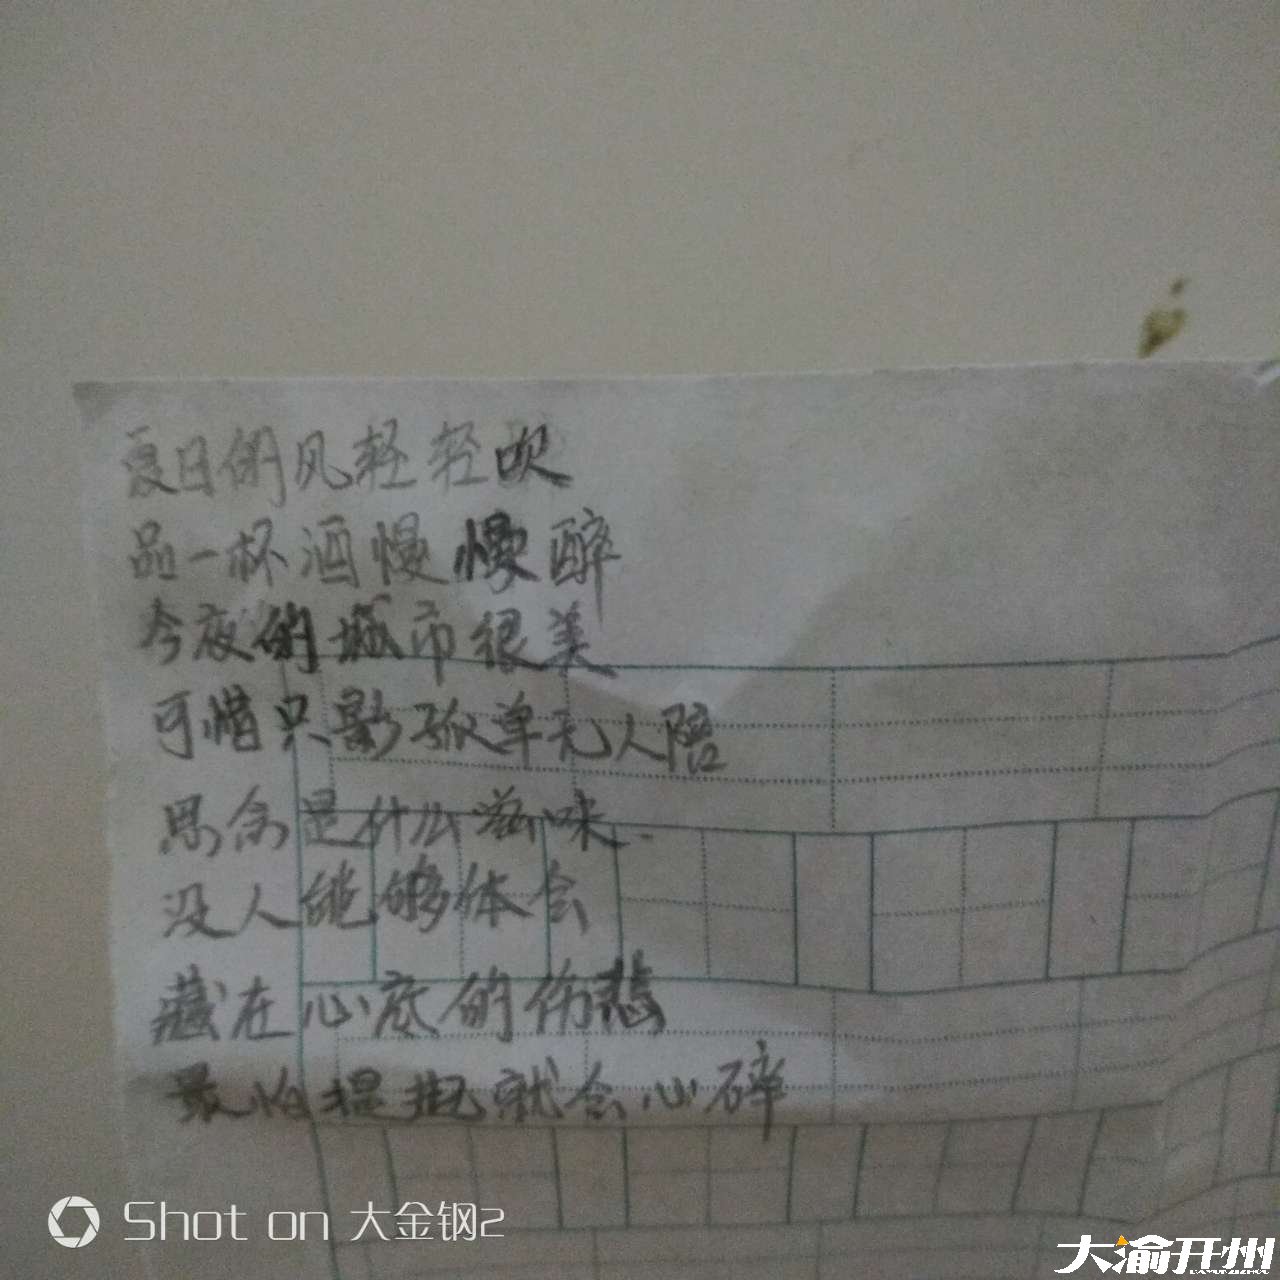 夏日的风轻轻吹
品一杯酒慢慢醉
今夜的城市很美
可惜只影孤单无人陪
思念是什么滋味
没人能够体会
藏在心底的伤悲
最怕提起就会心碎
Shot on 大金钢2
大渝开州